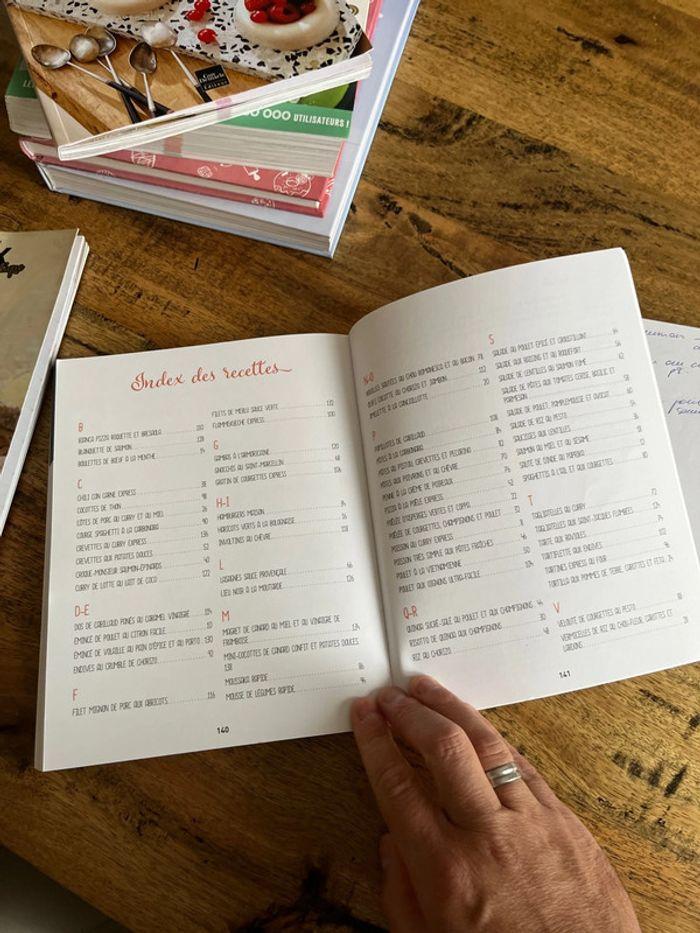 000 UTILISATEURS !
Index des recettes
B
BIANCA PIZZA ROQUETTE ET BRESAOLA 110
BLANQUETTE DE SAUMON 128
BOULETTES DE BŒUF À LA MENTHE 54
C
CHILI CON CARNE EXPRESS 38
COCOTTES DE THON 98
CÔTES DE PORC AU CURRY ET AU MIEL 26
COURGE SPAGHETTI À LA CARBONARA 90
CREVETTES AU CURRY EXPRESS 136
CREVETTES AUX POTATES DOUCES 52
CROQUE-MONSIEUR SAUMON-ÉPINARDS 40
CURRY DE LOTTE AU LAIT DE COCO 122
D-E
DOS DE CABILLAUD PANÉS AU CARAMEL VINAIGRE
ÉMINCÉ DE POULET AU CITRON FACILE 10
ÉMINCÉ DE VOLAILLE AU PAIN D'ÉPICE ET AU PORTO 130
ENDIVES AU CRUMBLE DE CHORIZO 92
F
FILET MIGNON DE PORC AUX ABRICOTS 116
FILETS DE MERLU SAUCE VERTE 132
FLAMMEKUECHE EXPRESS 100
G
GAMBAS À L'ARMORICAINE 120
GNOCCHIS AU SAINT-MARCELLIN 68
GRATIN DE COURGETTES EXPRESS 106
H-I
HAMBURGERS MAISON 84
HARICOTS VERTS À LA BOLOGNAISE 16
INVOLTINIS AU CHÈVRE 118
L
LASAGNES SAUCE PROVENÇALE 66
LIEU NOIR À LA MOUTARDE 126
M
MAGRET DE CANARD AU MIEL ET AU VINAIGRE DE
FRAMBOISE 134
MINI-COCOTTES DE CANARD CONFIT ET POTATES DOUCES
138
MOUSSAKA RAPIDE 86
MOUSSE DE LÉGUMES RAPIDE 94
140
N-O
NOUILLES SAUTÉES AU CHOU ROMANESCO ET AU BACON 78
ŒUFS COCOTTE AU CHORIZO ET JAMBON 112
OMELETTE À LA CANCOILLOTTE 20
P
PAPILLOTES DE CABILLAUD 108
PÂTES À LA CARBONARA 84
PÂTES AU PISTOU, CREVETTES ET PECORINO 82
PÂTES AUX POIVRONS ET AU CHÈVRE 70
PENNE À LA CRÈME DE POIREAUX 76
PIZZA À LA POÊLE EXPRESS 52
POÊLÉE D'ASPERGES VERTES ET COPPA 22
POÊLÉE DE COURGETTES, CHAMPIGNONS ET POULET 32
POISSON AU CURRY EXPRESS 8
POISSON TRÈS SIMPLE AUX PÂTES FRAÎCHES 46
POULET À LA VIETNAMIENNE 50
POULET AUX OIGNONS ULTRA-FACILE 104
Q-R
QUINOA SUCRÉ-SALÉ AU POULET ET AUX CHAMPIGNONS 44
RISOTTO DE QUINOA AUX CHAMPIGNONS 30
RIZ AU CHORIZO 48
S
SALADE AU POULET ÉPICÉ ET CROUSTILLANT 64
SALADE AUX RAISINS ET AU ROQUEFORT 56
SALADE DE LENTILLES AU SAUMON FUMÉ 62
SALADE DE PÂTES AUX TOMATES CERISE, BASILIC ET
PARMESAN 58
SALADE DE POULET, PAMPLEMOUSSE ET AVOCAT 54
SALADE DE RIZ AU PESTO 60
SAUCISSES AUX LENTILLES
SAUMON AU MIEL ET AU SÉSAME
SAUTÉ DE DINDE AU POIVRON
SPAGHETTIS À L'AIL ET AUX COURGETTES 80
T
TAGLIATELLES AU CURRY 72
TAGLIATELLES AUX SAINT-JACQUES FLAMBÉES 124
TARTE AUX RAVIOLES 74
TARTIFLETTE AUX ENDIVES 102
TARTINES EXPRESS AU FOUR 96
TORTILLA AUX POMMES DE TERRE, CAROTTES ET FETA 24
V
VELOUTÉ DE COURGETTES AU PESTO 18
VERMICELLES DE RIZ AU CHOU-FLEUR, CAROTTES ET
LARDONS 28
141